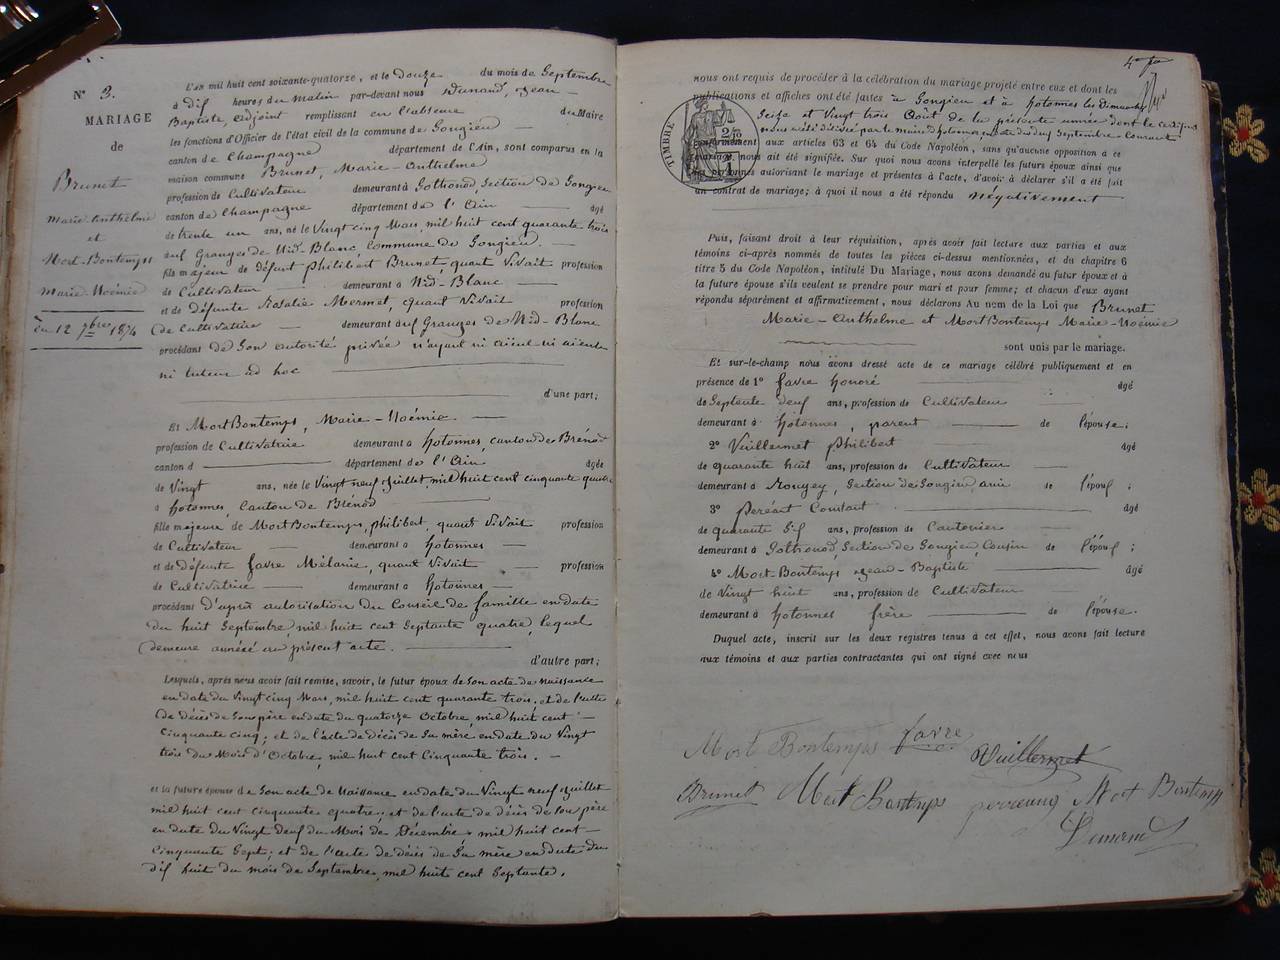 N° 3.
MARIAGE
de
Brunet
Marie Anthelme
et
Mort-Bontemps
Marie-Noémie
du 12 7bre 1874
L'an mil huit cent soixante-quatorze, et le douze du mois de Septembre
à dix heures du matin par-devant nous Dunand, Jean-
Baptiste, adjoint remplissant en l'absence du Maire
les fonctions d'Officier de l'état civil de la commune de Songieu
canton de Champagne département de l'Ain, sont comparus en la
maison commune Brunet, Marie-Anthelme
profession de Cultivateur demeurant à Sothonod, Section de Songieu
canton de Champagne département de l'Ain âgé
de trente un ans, né le Vingt cinq Mars, mil huit cent quarante trois
aux Granges de Nid-Blanc Commune de Songieu.
fils majeur de défunt Philibert Brunet, quant Vivait profession
de Cultivateur demeurant à Nid-Blanc
et de défunte Rosalie Mermet, quant Vivait profession
de Cultivatrice demeurant aux Granges de Nid-Blanc
procédant de Son autorité privée n'ayant ni aïeul ni aïeule
ni tuteur ad hoc
d'une part;
Et Mort Bontemps, Marie-Noémie.
profession de Cultivatrice demeurant à hotonnes, canton de Brénod
canton d département de l'Ain âgée
de Vingt ans, née le Vingt neuf Juillet, mil huit cent cinquante quatre
à hotonnes, Canton de Brénod
fille majeure de Mort Bontemps, philibert, quant Vivait profession
de Cultivateur demeurant à hotonnes
et de défunte favre Mélanie, quant Vivait profession
de Cultivatrice demeurant à hotonnes
procédant D'après autorisation du Conseil de famille en date
du huit Septembre, mil huit cent Septante quatre, lequel
demeure annéxé au présent acte.
d'autre part;
Lesquels, après nous avoir fait remise, savoir, le futur époux de son acte de naissance
en date du Vingt cinq Mars, mil huit cent quarante trois; et de l'acte
de décès de son père en date du quatorze Octobre, mil huit cent
Cinquante cinq; et de l'acte de décès de Sa mère en date du Vingt
trois du Mois d'Octobre, mil huit cent Cinquante trois.
et la future épouse de Son acte de Naissance en date du Vingt neuf Juillet
mil huit cent cinquante quatre; et de l'acte de décès de son père
en date du Vingt Neuf du Mois de Décembre, mil huit cent
Cinquante Sept; et de l'acte de décès de Sa mère en date du
dix huit du mois de Septembre, mil huit cent Septante.
nous ont requis de procéder à la célébration du mariage projeté entre eux et dont les
publications et affiches ont été faites à Songieu et à hotonnes les Dimanches
Seize et Vingt trois Août de la présente année dont le certificat
nous a été délivré par le maire d'hotonnes, Septembre courant
conformément aux articles 63 et 64 du Code Napoléon, sans qu'aucune opposition à ce
mariage nous ait été signifiée. Sur quoi nous avons interpellé les futurs époux ainsi que
les personnes autorisant le mariage et présentes à l'acte, d'avoir à déclarer s'il a été fait
un contrat de mariage; à quoi il nous a été répondu négativement
TIMBRE
Puis, faisant droit à leur réquisition, après avoir fait lecture aux parties et aux
témoins ci-après nommés de toutes les pièces ci-dessus mentionnées, et du chapitre 6
titre 5 du Code Napoléon, intitulé Du Mariage, nous avons demandé au futur époux et à
la future épouse s'ils veulent se prendre pour mari et pour femme; et chacun d'eux ayant
répondu séparément et affirmativement, nous déclarons Au nom de la Loi que Brunet
Marie-Anthelme et Mort Bontemps Marie-Noémie
sont unis par le mariage.
Et sur-le-champ nous avons dressé acte de ce mariage célébré publiquement et en
présence de 1° favre honoré âgé
de Septante Neuf ans, profession de Cultivateur
demeurant à hotonnes, parent de l'épouse;
2° Vuillermet philibert âgé
de quarante huit ans, profession de Cultivateur
demeurant à Section de Songieu, ami de l'époux;
3° Constant âgé
de quarante Six ans, profession de Cantonier
demeurant à Sothonod, Section de Songieu, Cousin de l'époux;
4° Mort-Bontemps Jean-Baptiste âgé
de Vingt huit ans, profession de Cultivateur
demeurant à hotonnes frère de l'épouse.
Duquel acte, inscrit sur les deux registres tenus à cet effet, nous avons fait lecture
aux témoins et aux parties contractantes qui ont signé avec nous
Mort Bontemps favre Vuillermet
Brunet Mort Bontemps Mort Bontemps
Dunand